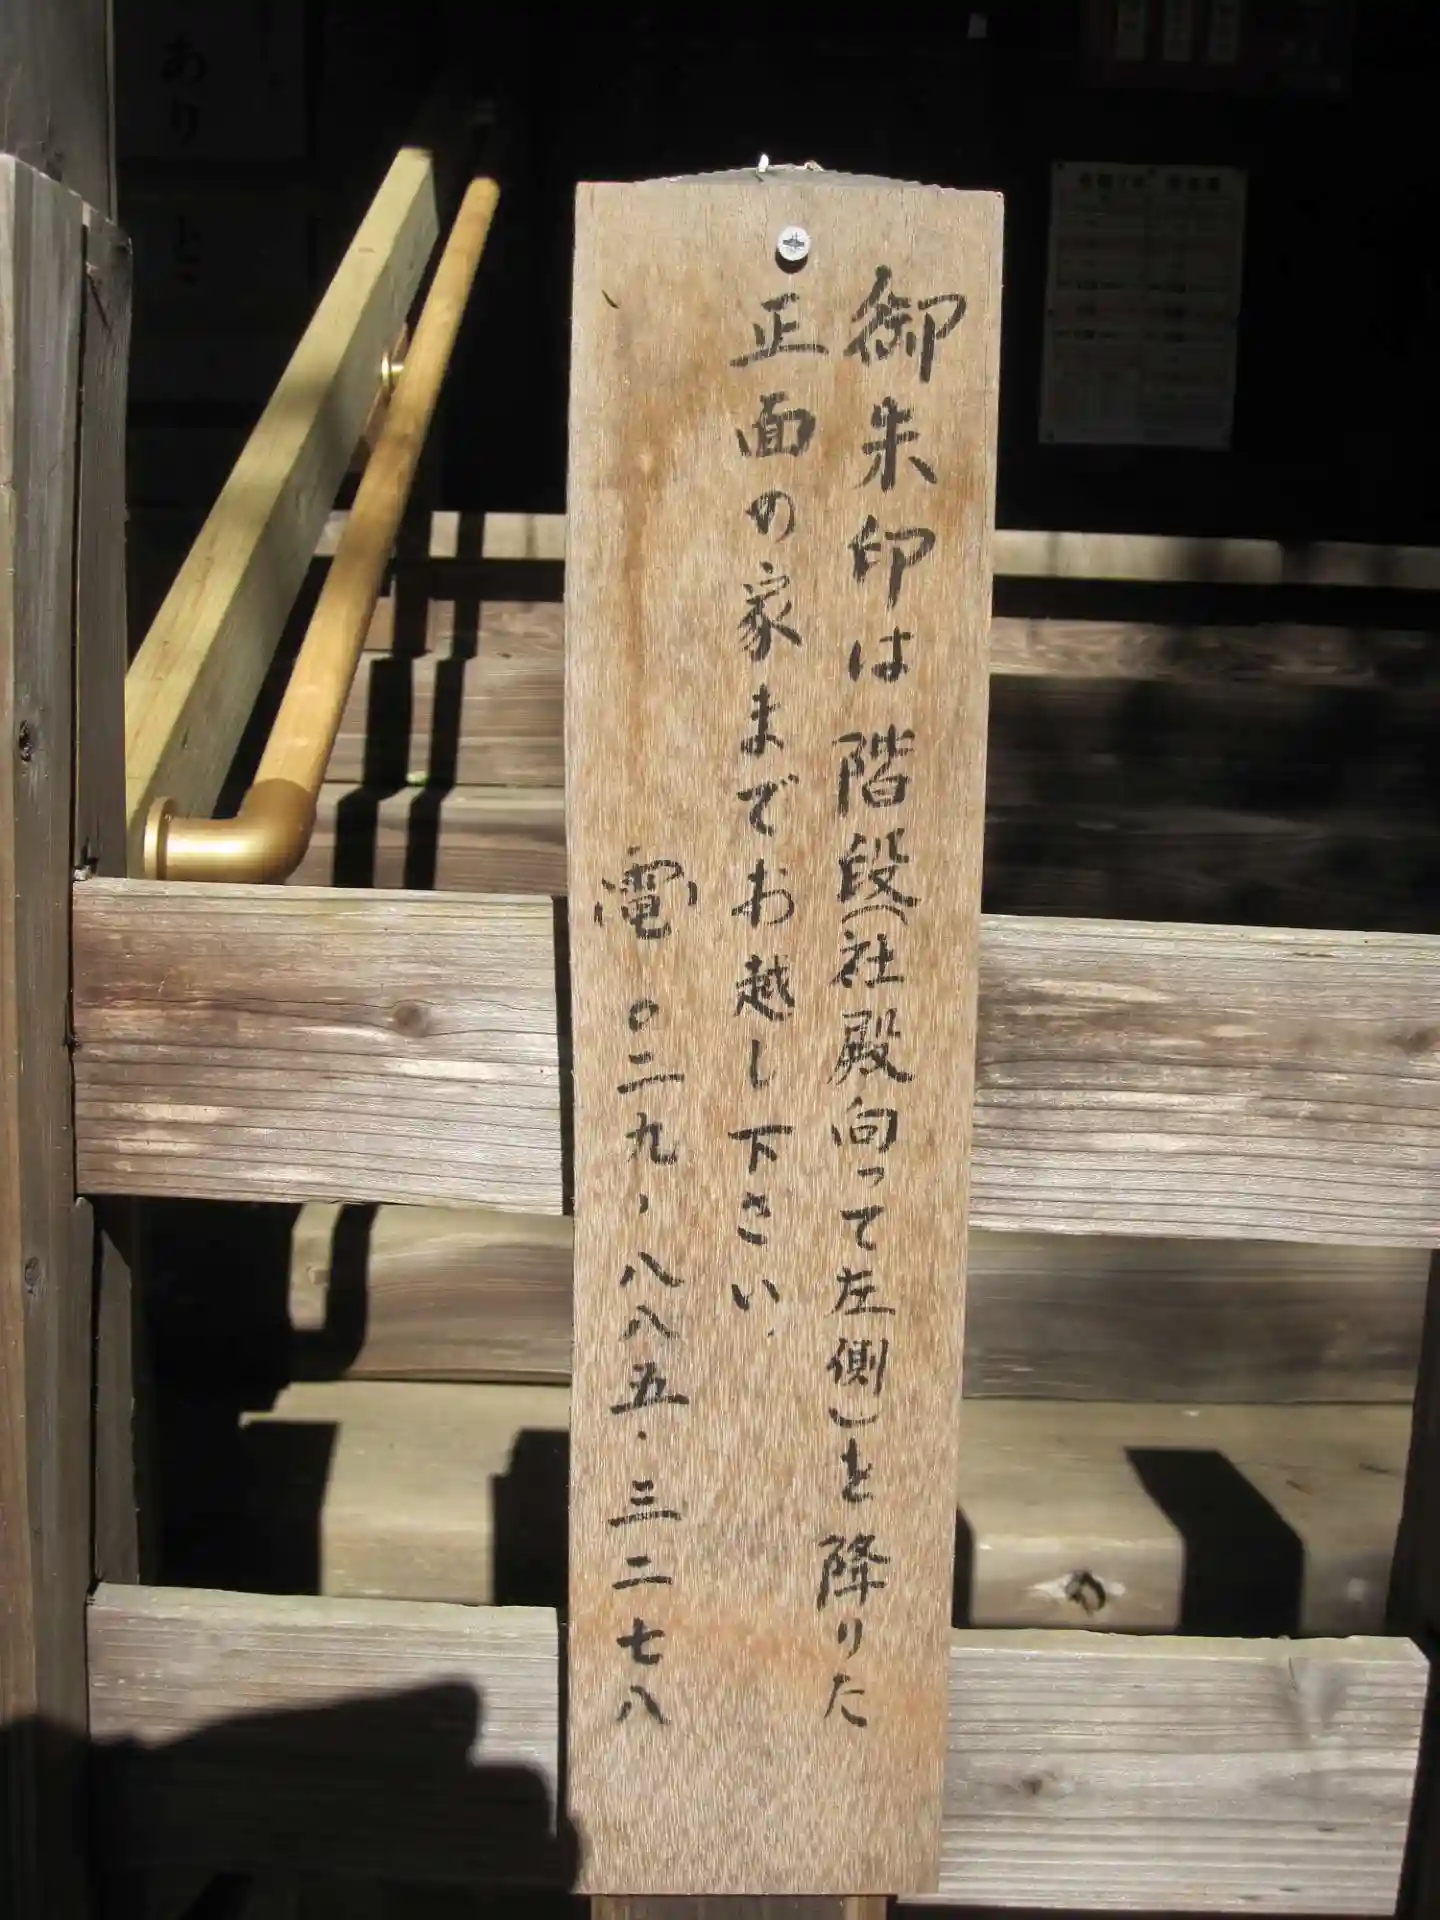 御朱印は階段(社殿向って左側)を降りた
正面の家までお越し下さい
電 〇二九、八八五・三二七八
あり